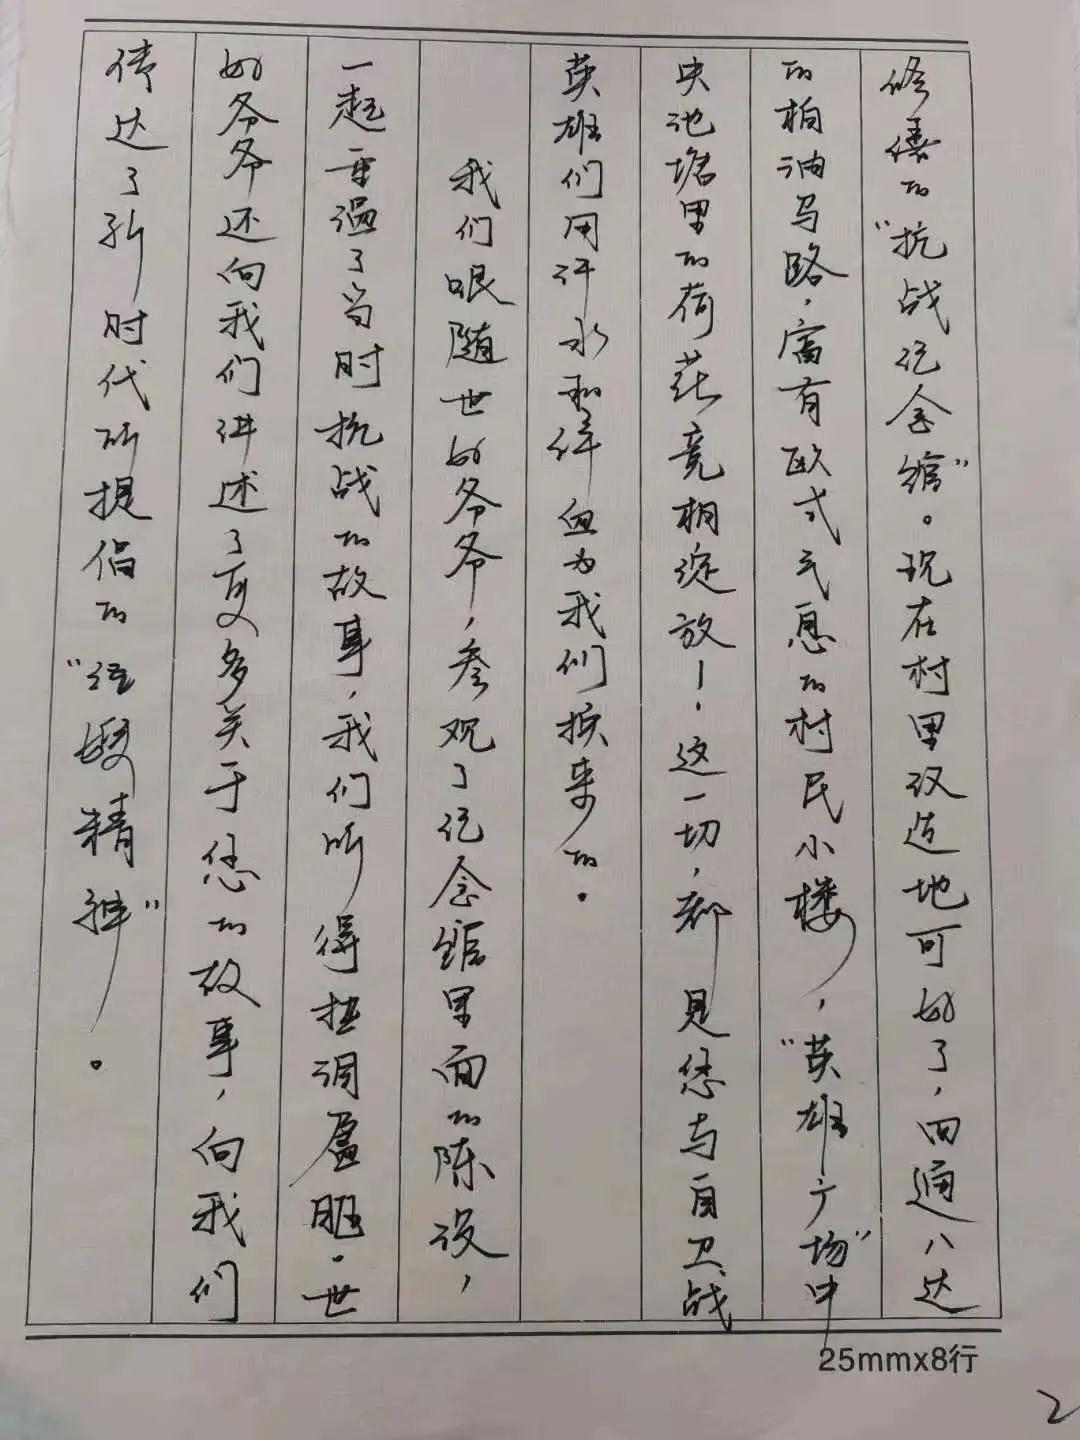 修缮的“抗战纪念馆”。现在村里改造地可好了，四通八达
的柏油马路，富有欧式气息的村民小楼，“英雄广场”中
央池塘里的荷花竞相绽放！这一切，都是您与自卫战
英雄们用汗水和鲜血为我们换来的。
我们跟随世好爷爷，参观了纪念馆里面的陈设，
一起重温了当时抗战的故事，我们听得热泪盈眶。世
好爷爷还向我们讲述了更多关于您的故事，向我们
传达了新时代所提倡的“精神”。
25mmx8行
2